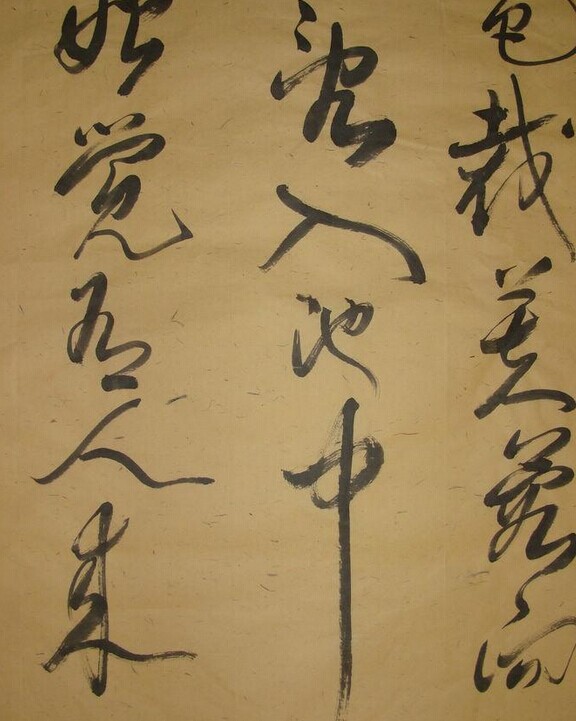 色裁芙蓉向
亂入池中
始覺有人来